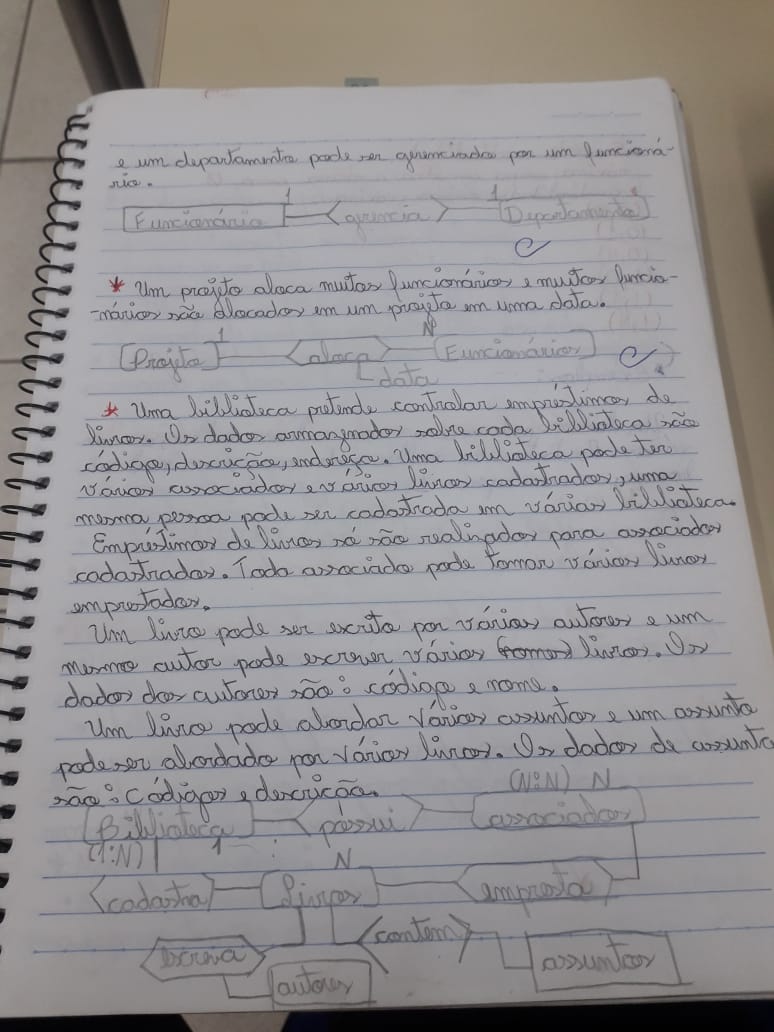 e um departamento pode ser gerenciado por um funcioná-
rio.
1 1
Funcionário gerencia Departamento
* Um projeto aloca muitos funcionários e muitos funcio-
-nários são alocados em um projeto em uma data.
1 N
Projeto aloca Funcionários
data
* Uma biblioteca pretende controlar empréstimos de
livros. Os dados armazenados sobre cada biblioteca são
código, descrição, endereço. Uma biblioteca pode ter
vários associados e vários livros cadastrados, uma
mesma pessoa pode ser cadastrada em várias biblioteca.
Empréstimos de livros só são realizados para associados
cadastrados. Todo associado pode tomar vários livros
emprestados.
Um livro pode ser escrito por vários autores e um
mesmo autor pode escrever vários (tomos) livros. Os
dados dos autores são: código e nome.
Um livro pode abordar vários assuntos e um assunto
pode ser abordado por vários livros. Os dados de assunto
são: códigos e descrição.
(N:N) N
Biblioteca possui associados
(1:N) 1 N
cadastra livros empresta
contem
escreva assuntos
autores